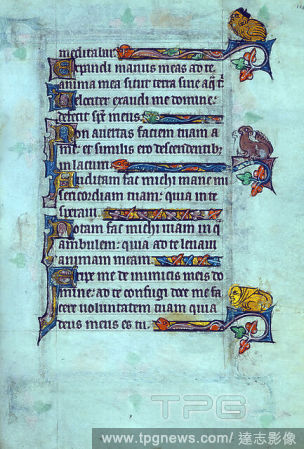 meditabar
Expandi manus meas ad te
anima mea sicut terra sine aqͣ t
Velociter exaudi me domine:
defecit sps meus
Non avertas faciem tuam a
me: et similis ero descendentib;
in lacum
Auditam fac michi mane mi
sericordiam tuam: quia in te
speravi
Notam fac michi viam in q̃
ambulem: quia ad te levavi
animam meam
Eripe me de inimicis meis do
mine: ad te confugi doce me fa
cere voluntatem tuam quia
deus meus es tu
TPG
www.tpgnews.com/ 達志影像